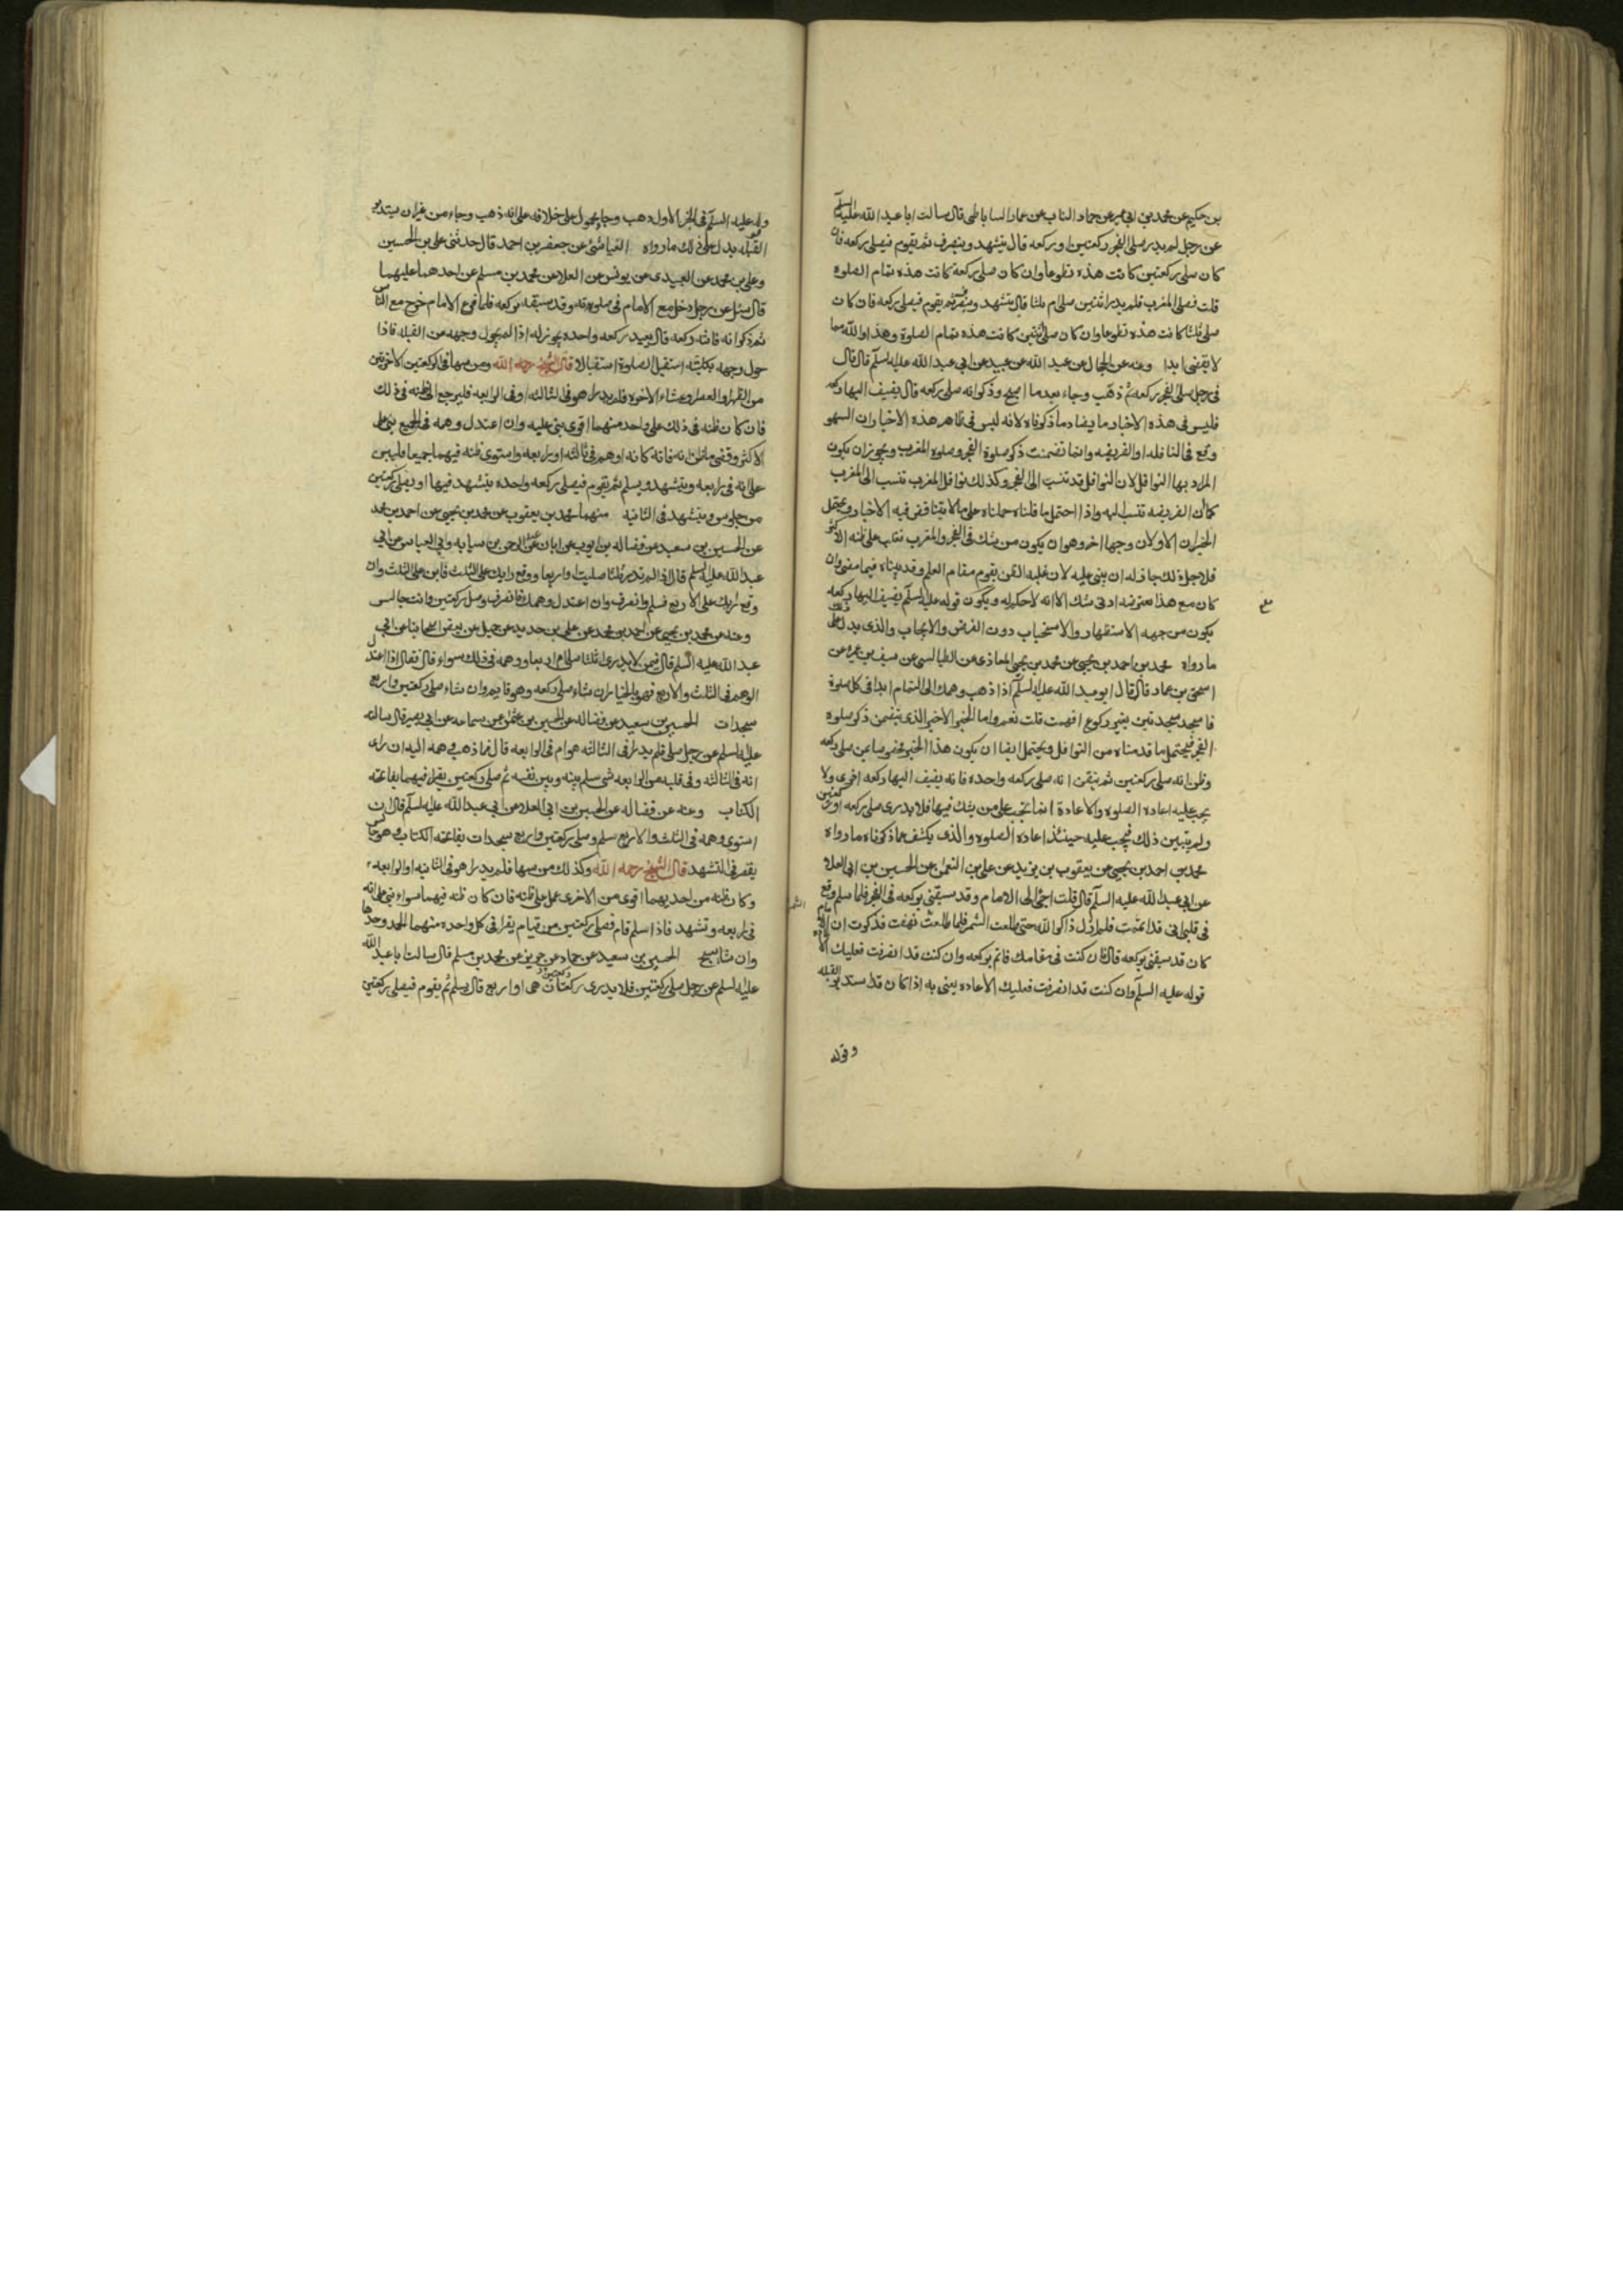 بن حكيم عن محمد بن ابي عمير عن حماد الناب عن عمار الساباطي قال سالت ابا عبد الله عليه السلم
عن رجل لم يدر صلى الفجر ركعتين او ركعه قال يتشهد وينصرف ثم يقوم فيصلي ركعه فان
كان صلى ركعتين كانت هذه تطوعا وان كان صلى ركعة كانت هذه تمام الصلوة
قلت فصلى المغرب فلم يدر اثنتين صلى ام ثلثا قال يتشهد وينصرف ثم يقوم فيصلي ركعه فان كان
صلى ثلثا كانت هذه تطوعا وان كان صلى ثنتين كانت هذه تمام الصلوة وهذا والله مما
لا يقضى ابدا وعنه عن الحجال عن عبد الله عن عبيد عن ابي عبد الله عليه السلم قال قال
في رجل صلى الفجر ركعه ثم ذهب وجاء بعد ما اصبح وذكر انه صلى ركعه قال يضيف اليها ركعه
فليس في هذه الاخبار ما يضاد ما ذكرناه لانه ليس في ظاهر هذه الاخبار ان السهو
وقع في النافله او الفريضه وانما تضمنت ذكر صلوة الفجر وصلوه المغرب ويجوز ان يكون
المراد بها النوافل لان النوافل قد تنسب الى الفجر وكذلك نوافل المغرب تنسب الى المغرب
كما ان الفريضه تنسب اليه واذا احتمل ما قلناه حملناه على ما لا يتناقض فيه الاخبار ويحتمل
الخبران الاولان وجها اخر وهو ان يكون من شك في الفجر والمغرب تغلب على ظنه الاكثر
فلاجل ذلك جاز له ان يبنى عليه لان غلبه الظن يقوم مقام العلم وقد بيناه فيما مضى وان
كان مع هذا معترضه ادنى شك الا انه لا حكم له ويكون قوله عليه السلم يضيف اليها ركعه
يكون من جهه الاستظهار والاستحباب دون الفرض والايجاب والذي يدل على ذلك
ما رواه محمد بن احمد بن يحيى عن محمد بن يحيى المعاذي عن الطيالسي عن سيف بن عميره عن
اسحق بن عمار قال قال ابو عبد الله عليه السلم اذا ذهب وهمك الى التمام ابدا في كل صلوة
فاسجد سجدتين بغير ركوع افهمت قلت نعم واما الخبر الاخير الذي يتضمن ذكر صلوه
الفجر فيحتمل ما قدمناه من النوافل ويحتمل ايضا ان يكون هذا الخبر مخصوصا بمن صلى ركعه
وظن انه صلى ركعتين ثم تيقن انه صلى ركعه واحده فانه يضيف اليها ركعه اخرى ولا
يجب عليه اعاده الصلوه والاعادة انما تجب على من يشك فيها فلا يدري صلى ركعه او ركعتين
ولم يتبين ذلك فيجب عليه حينئذ اعاده الصلوه والذي يكشف عما ذكرناه ما رواه
محمد بن احمد بن يحيى عن يعقوب بن يزيد عن علي بن النعمن عن الحسين بن ابي العلا
عن ابي عبد الله عليه السلم قال قلت اجئ الى الامام وقد سبقني بركعه في الفجر فلما سلم وقع
في قلبي اني قد اتممت فلم ازل ذاكرا لله حتى طلعت الشمس فلما طلعت نهضت فذكرت ان الامام
كان قد سبقني بركعه قال فان كنت في مقامك فاتم بركعه وان كنت قد انصرفت فعليك الاعادة
قوله عليه السلم وان كنت قد انصرفت فعليك الاعاده يعنى به اذا كان قد استدبر القبله
وقوله
وقوله عليه السلم في الخبر الاول ذهب وجاء محمول على خلافه على انه ذهب وجاء من غير ان يستدبر
القبله يدل على ذلك ما رواه العياشي عن جعفر بن احمد قال حدثنى علي بن الحسين
وعلي بن محمد عن العبيدي عن يونس عن العلا عن محمد بن مسلم عن احدهما عليهما
قال سئل عن رجل دخل مع الامام في صلوته وقد سبقه بركعه فلما فرغ الامام خرج مع الناس
ثم ذكر انه فاتته ركعه قال يعيد ركعه واحده يجوز له اذا لم يحول وجهه من القبله فاذا
حول وجهه بكليته استقبل الصلوة استقبالا قال الشيخ رحمه الله ومن سها في الركعتين الاخرتين
من الظهر والعصر وعشاء الاخره فلم يدر اهو في الثالثه او في الرابعه فليرجع الى ظنه في ذلك
فان كان ظنه في ذلك على واحد منهما اقوى بنى عليه وان اعتدل وهمه في الجميع بنى على
الاكثر وقضى ما ظن انه فاته كانه اوهم في ثالثه او رابعه واستوى ظنه فيهما جميعا فليبن
على انه في رابعه ويتشهد ويسلم ثم يقوم فيصلي ركعه واحده يتشهد فيها او يصلى ركعتين
من جلوس ويتشهد في الثانيه منهما محمد بن يعقوب عن محمد بن يحيى عن احمد بن محمد
عن الحسين بن سعيد عن فضاله بن ايوب عن ابان عن عبد الرحمن بن سيابه وابي العباس عن ابي
عبد الله عليه السلم قال اذا لم تدر ثلثا صليت او اربعا ووقع رايك على الثلث فابن على الثلث وان
وقع رايك على الاربع فسلم وانصرف وان اعتدل وهمك فانصرف وصل ركعتين وانت جالس
وعنه عن محمد بن يحيى عن احمد بن محمد عن علي بن حديد عن جميل عن بعض اصحابنا عن ابي
عبد الله عليه السلم قال فيمن لا يدري اثلثا صلى ام اربعا ووهمه في ذلك سواء قال فقال اذا اعتدل
الوهم في الثلث والاربع فهو بالخيار ان شاء صلى ركعه وهو قايم وان شاء صلى ركعتين واربع
سجدات الحسين بن سعيد عن فضاله عن الحسين بن عثمن عن سماعه عن ابي بصير قال سالته
عليه السلم عن رجل صلى فلم يدر افي الثالثه هو ام في الرابعه قال فما ذهب وهمه اليه ان راى
انه في الثالثه وفي قلبه من الرابعه شي سلم بينه وبين نفسه ثم صلى ركعتين يقرا فيهما بفاتحه
الكتاب وعنه عن فضاله عن الحسين بن ابي العلا عن ابي عبد الله عليه السلم قال ان
استوى وهمه في الثلث والاربع سلم وصلى ركعتين واربع سجدات بفاتحه الكتاب وهو جالس
يقصر في التشهد قال الشيخ رحمه الله وكذلك من سها فلم يدر اهو في الثانيه او الرابعه
وكان ظنه من احديهما اقوى من الاخرى عمل على ظنه فان كان ظنه فيهما سواء بنى على انه
في رابعه وتشهد فاذا سلم قام فصلى ركعتين من قيام يقرا في كل واحده منهما الحمد وحدها
وان شا سبح الحسين بن سعيد عن حماد عن حريز عن محمد بن مسلم قال سالت ابا عبد الله
عليه السلم عن رجل صلى ركعتين فلا يدري ركعتان هي او اربع قال يسلم ثم يقوم فيصلي ركعتين